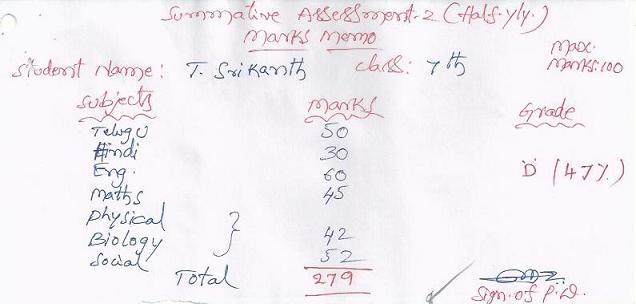 Summative Assessment-2 (Half-yly.)
Marks Memo
Max. Marks:100
Student Name: T. Srikanth Class: 7th
Subjects Marks Grade
Telugu 50
Hindi 30
Eng. 60 D (47%)
Maths 45
Physical
Biology } 42
Social 52
Total 279
Sign. of P.D.